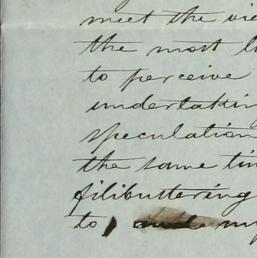 meet the vie
the most l
to perceive
undertakin
speculation
the same tim
filibuttering
to, and my